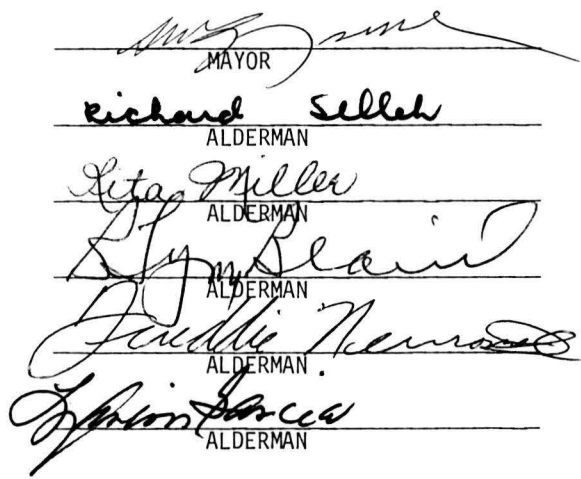 MAYOR
Richard Selleh
ALDERMAN
Rita Miller
ALDERMAN
Blain
ALDERMAN
Freddie
ALDERMAN
Garcia
ALDERMAN